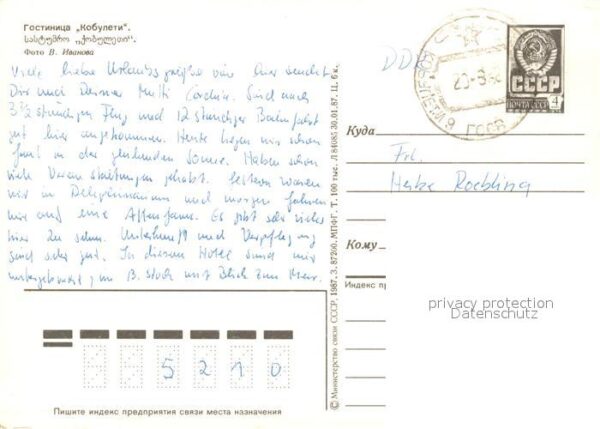 Гостиница „Кобулети".
სასტუმრო „ქობულეთი".
Фото В. Иванова
Viele liebe Urlaubsgrüße von hier sendet
Dir und Deiner Mutti Sind nach
3 1/2 stündigen Flug und 12 stündiger Bahnfahrt
gut hier angekommen. Heute liegen wir schon
faul in der glühenden Sonne. Haben schon
viele Veranstaltungen gehabt. Gestern waren
wir in Delphinarium und morgen fahren
wir auf eine Affenfarm. Es gibt sehr vieles
hier zu sehn. Unterkunft und Verpflegung
sind sehr gut. In diesem Hotel sind wir
untergebracht, im 13. Stock mit Blick zum Meer.
DDR
СССР
ПОЧТА СССР
4
ГССР
Куда
Frl.
Heike Roebling
Кому
Индекс пр
privacy protection
Datenschutz
5 2 1 0
Пишите индекс предприятия связи места назначения
© Министерство связи СССР, 1987. З. 87200. МПФГ. Т. 100 тыс. Л 84085 30.01.87. Ц. 6 к.